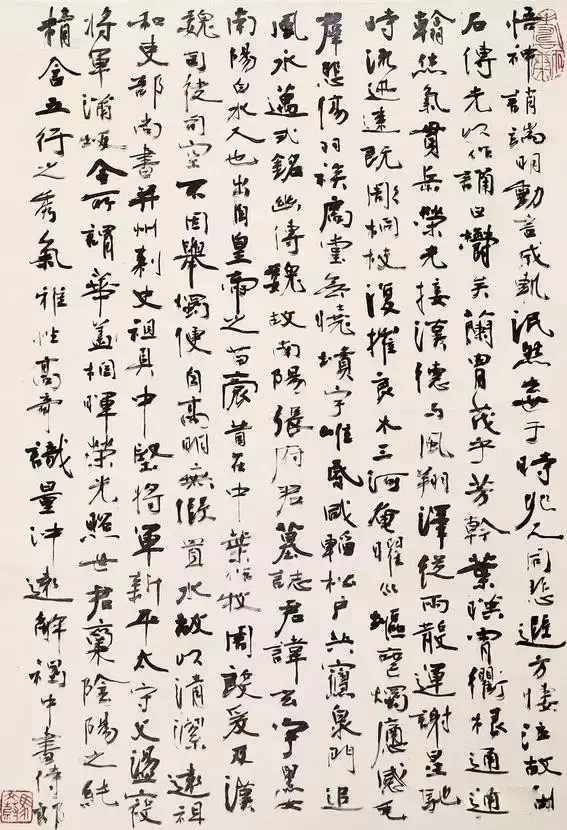 悟神誚端明動言成軌泯然去于時凡人同悲遐方悽泣故刊
石傳光以作誦曰鬱矣蘭胄茂乎芳幹葉映霄衢根通
翰然氣貫岳榮光接漢德与風翔澤從雨散運謝星馳
時流迅速既彫桐枝復摧良木三河奄曜巛塸喪燭感毛
羣悲傷羽族扃堂無曉墳宇唯昏咸韜松户共寢泉門追
風永邁式銘幽傳魏故南陽張府君墓誌君諱玄字黑女
南陽白水人也出自皇帝之苗裔昔在中葉作牧周殷爰及漢
魏司徒司空不因舉燭便自高明無假置水故以清潔遠祖
和吏部尚書并州刺史祖具中堅將軍新平太守父盪寇
將軍蒲坂令所謂華蓋相暉榮光照世君稟陰陽之純
精含五行之秀氣雅性高奇識量沖遠解褐中書侍郎